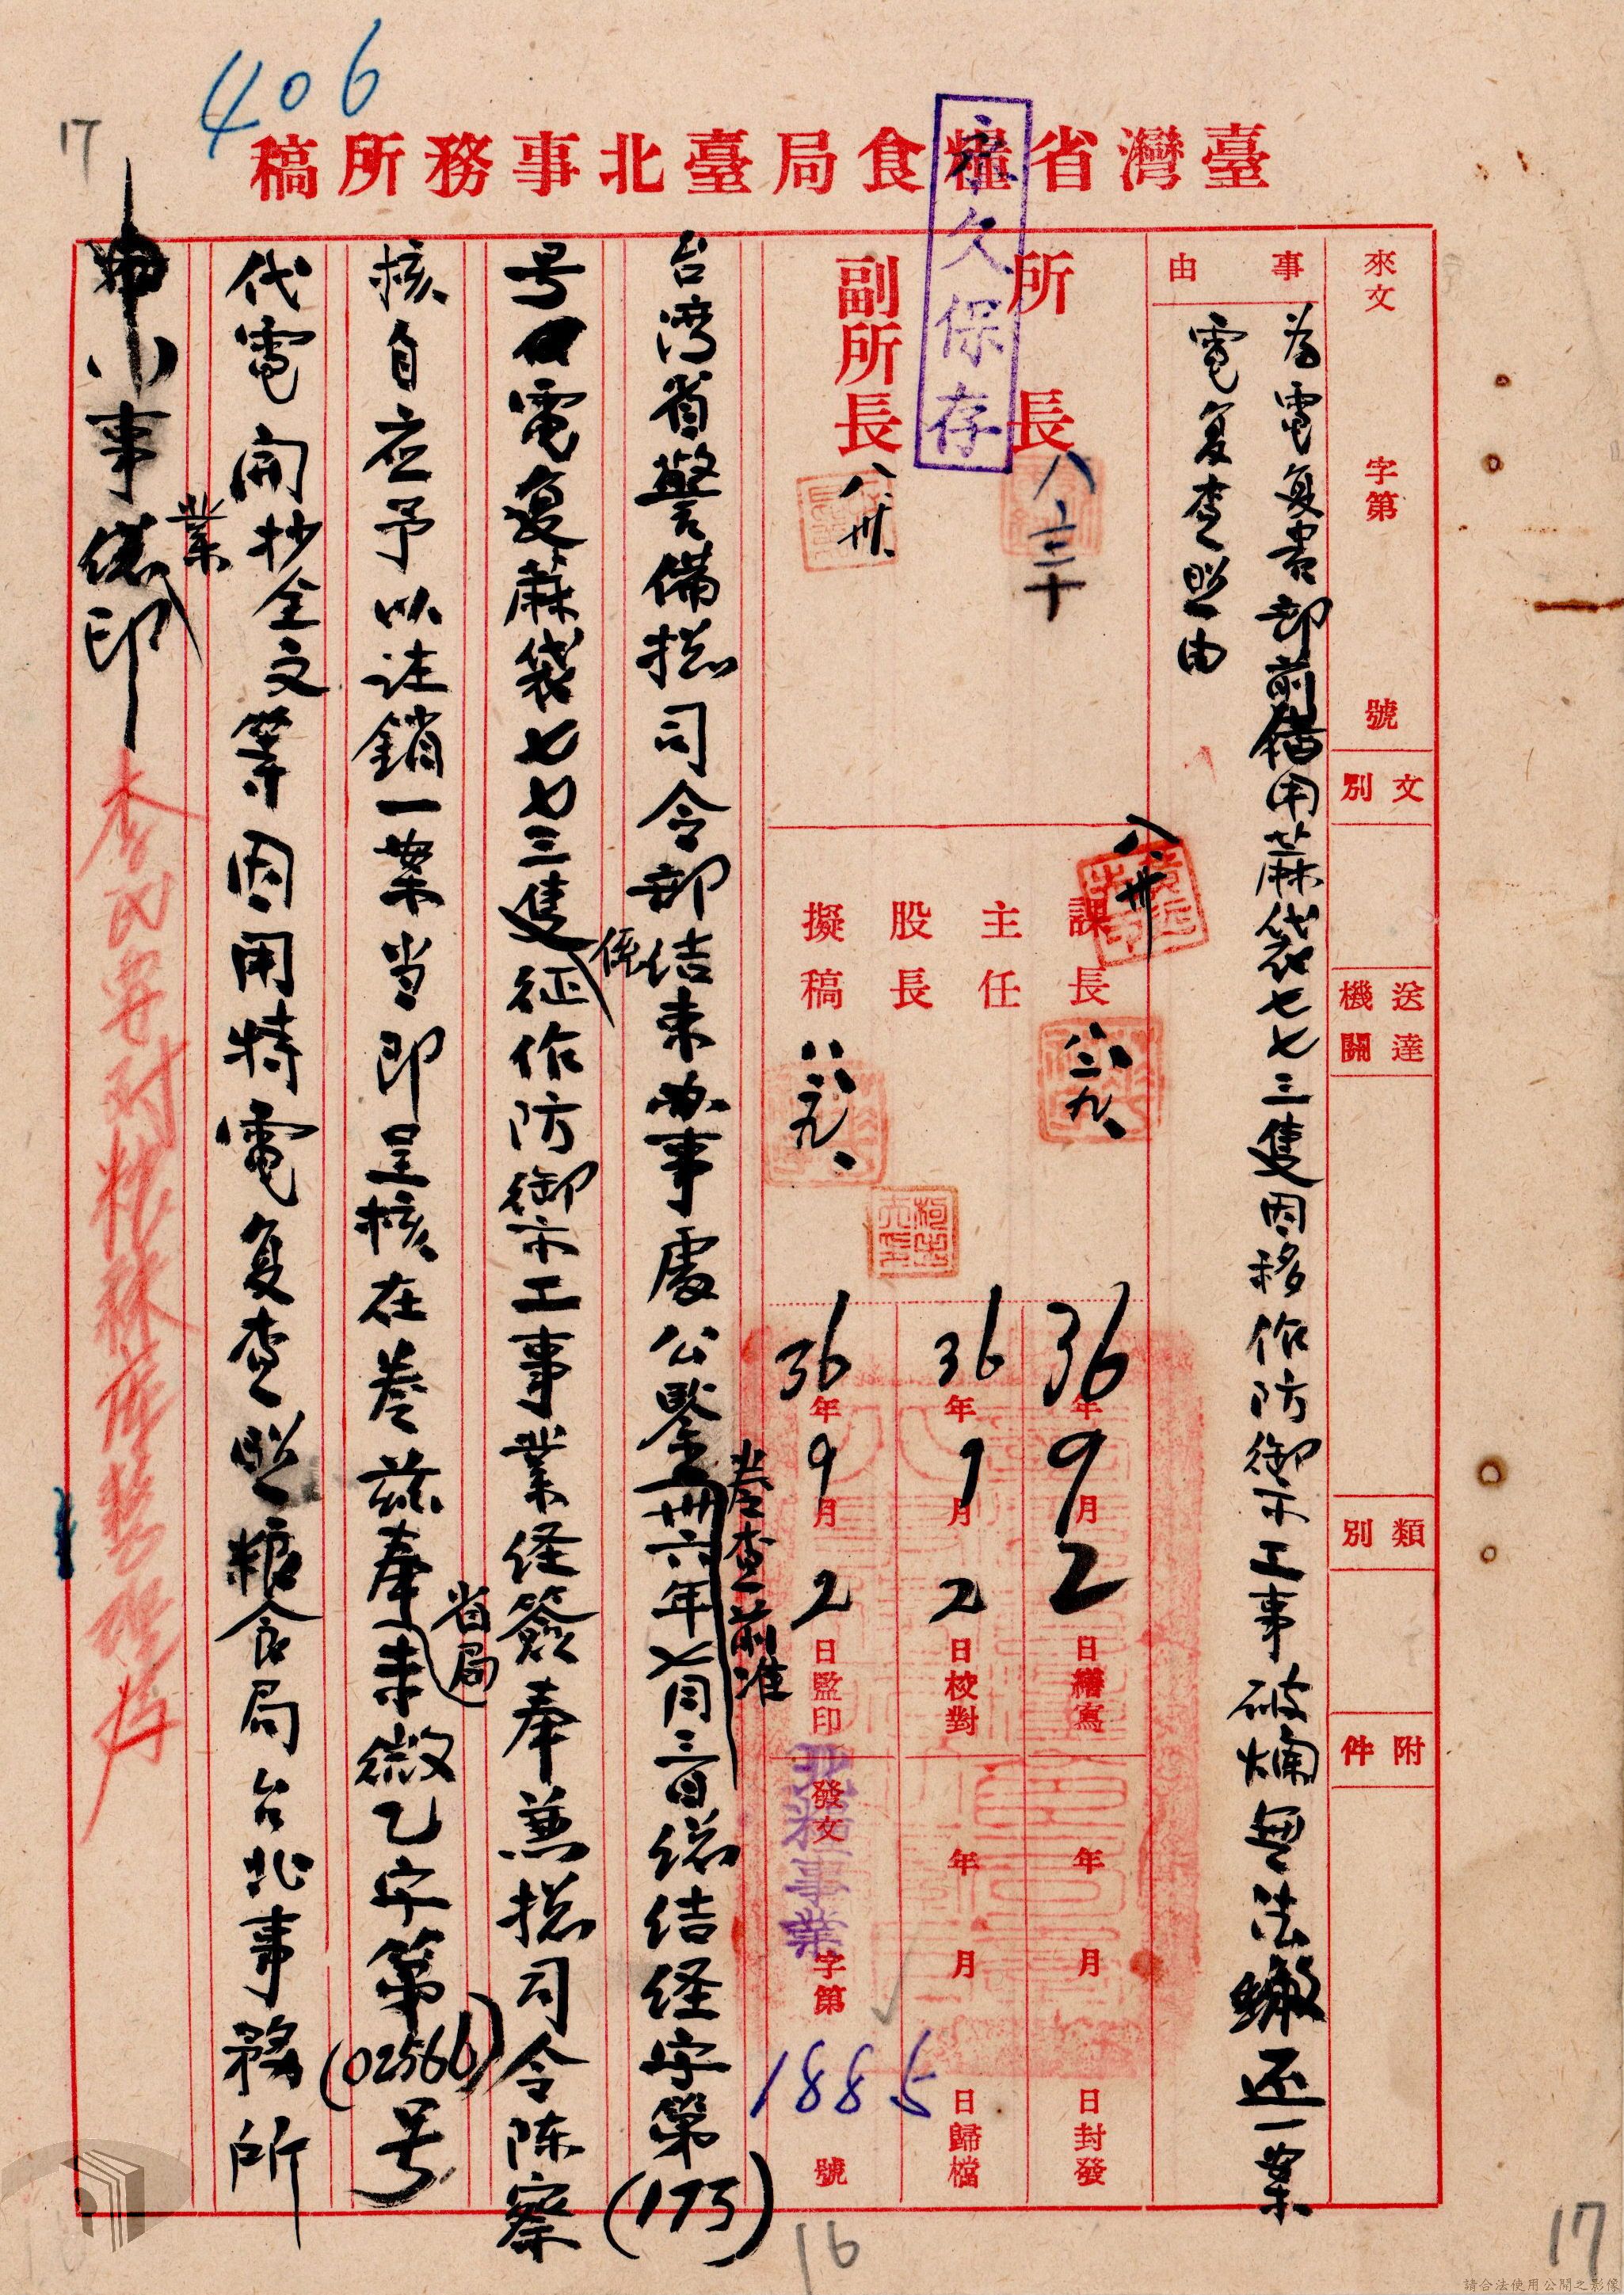 406
17
臺灣省糧食局臺北事務所稿
永久保存
來文 字第 號
文別
送達機關
類別
附件
事由
為電复貴部前借用蔴袋七七三隻因移作防御示工事破爛無法繳还一案
電复查照由
所長 八、三十
副所長 八、卅、
課長 八、卅
主任 八、二九、
股長
擬稿 八、二九、
36年9月2日繕寫
36年9月2日校對
36年9月2日監印
年月日封發
年月日歸檔
發文 北糧事業 字第 1885 號
台湾省警備捴司令部结束办事處公鑒卅六年七月三日總结经字第(173)
卷查前准
号电電复蔴袋七七三隻征作防御示工事業经簽奉兼捴司令陈察
係
核自应予以註銷一案当即呈核在卷兹奉未微乙字第(02566)号
省局
代電開抄全文等因用特電复查照糧食局台北事務所
申小事總印
業
16
17
請合法使用公開之影像